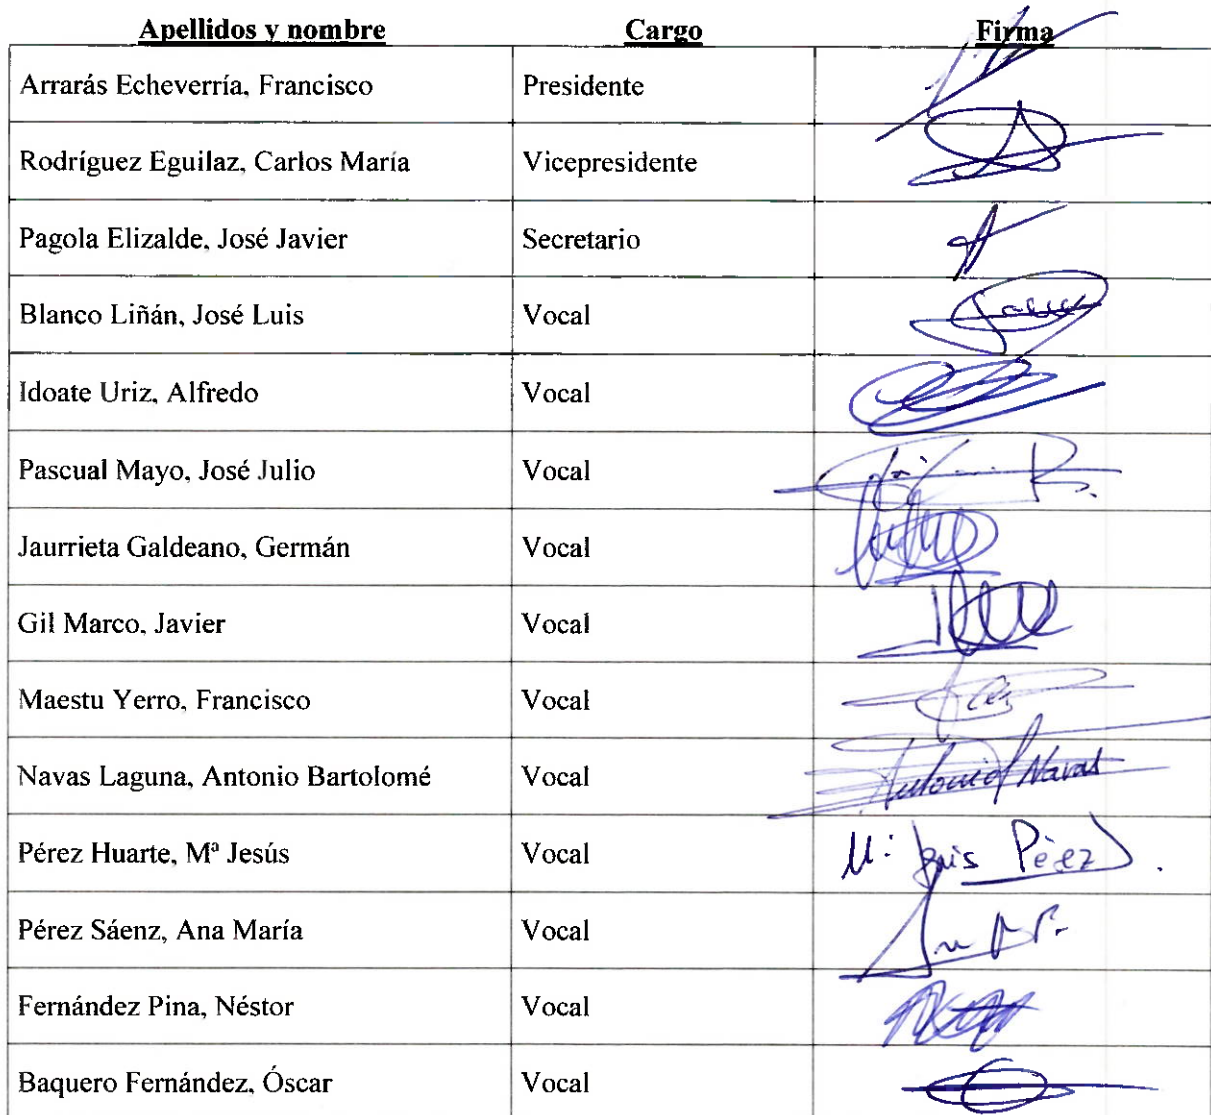 Apellidos y nombre Cargo Firma
Arrarás Echeverría, Francisco Presidente
Rodríguez Eguilaz, Carlos María Vicepresidente
Pagola Elizalde, José Javier Secretario
Blanco Liñán, José Luis Vocal
Idoate Uriz, Alfredo Vocal
Pascual Mayo, José Julio Vocal
Jaurrieta Galdeano, Germán Vocal
Gil Marco, Javier Vocal
Maestu Yerro, Francisco Vocal
Navas Laguna, Antonio Bartolomé Vocal Antonio Navas
Pérez Huarte, Mª Jesús Vocal Pérez
Pérez Sáenz, Ana María Vocal
Fernández Pina, Néstor Vocal
Baquero Fernández, Óscar Vocal